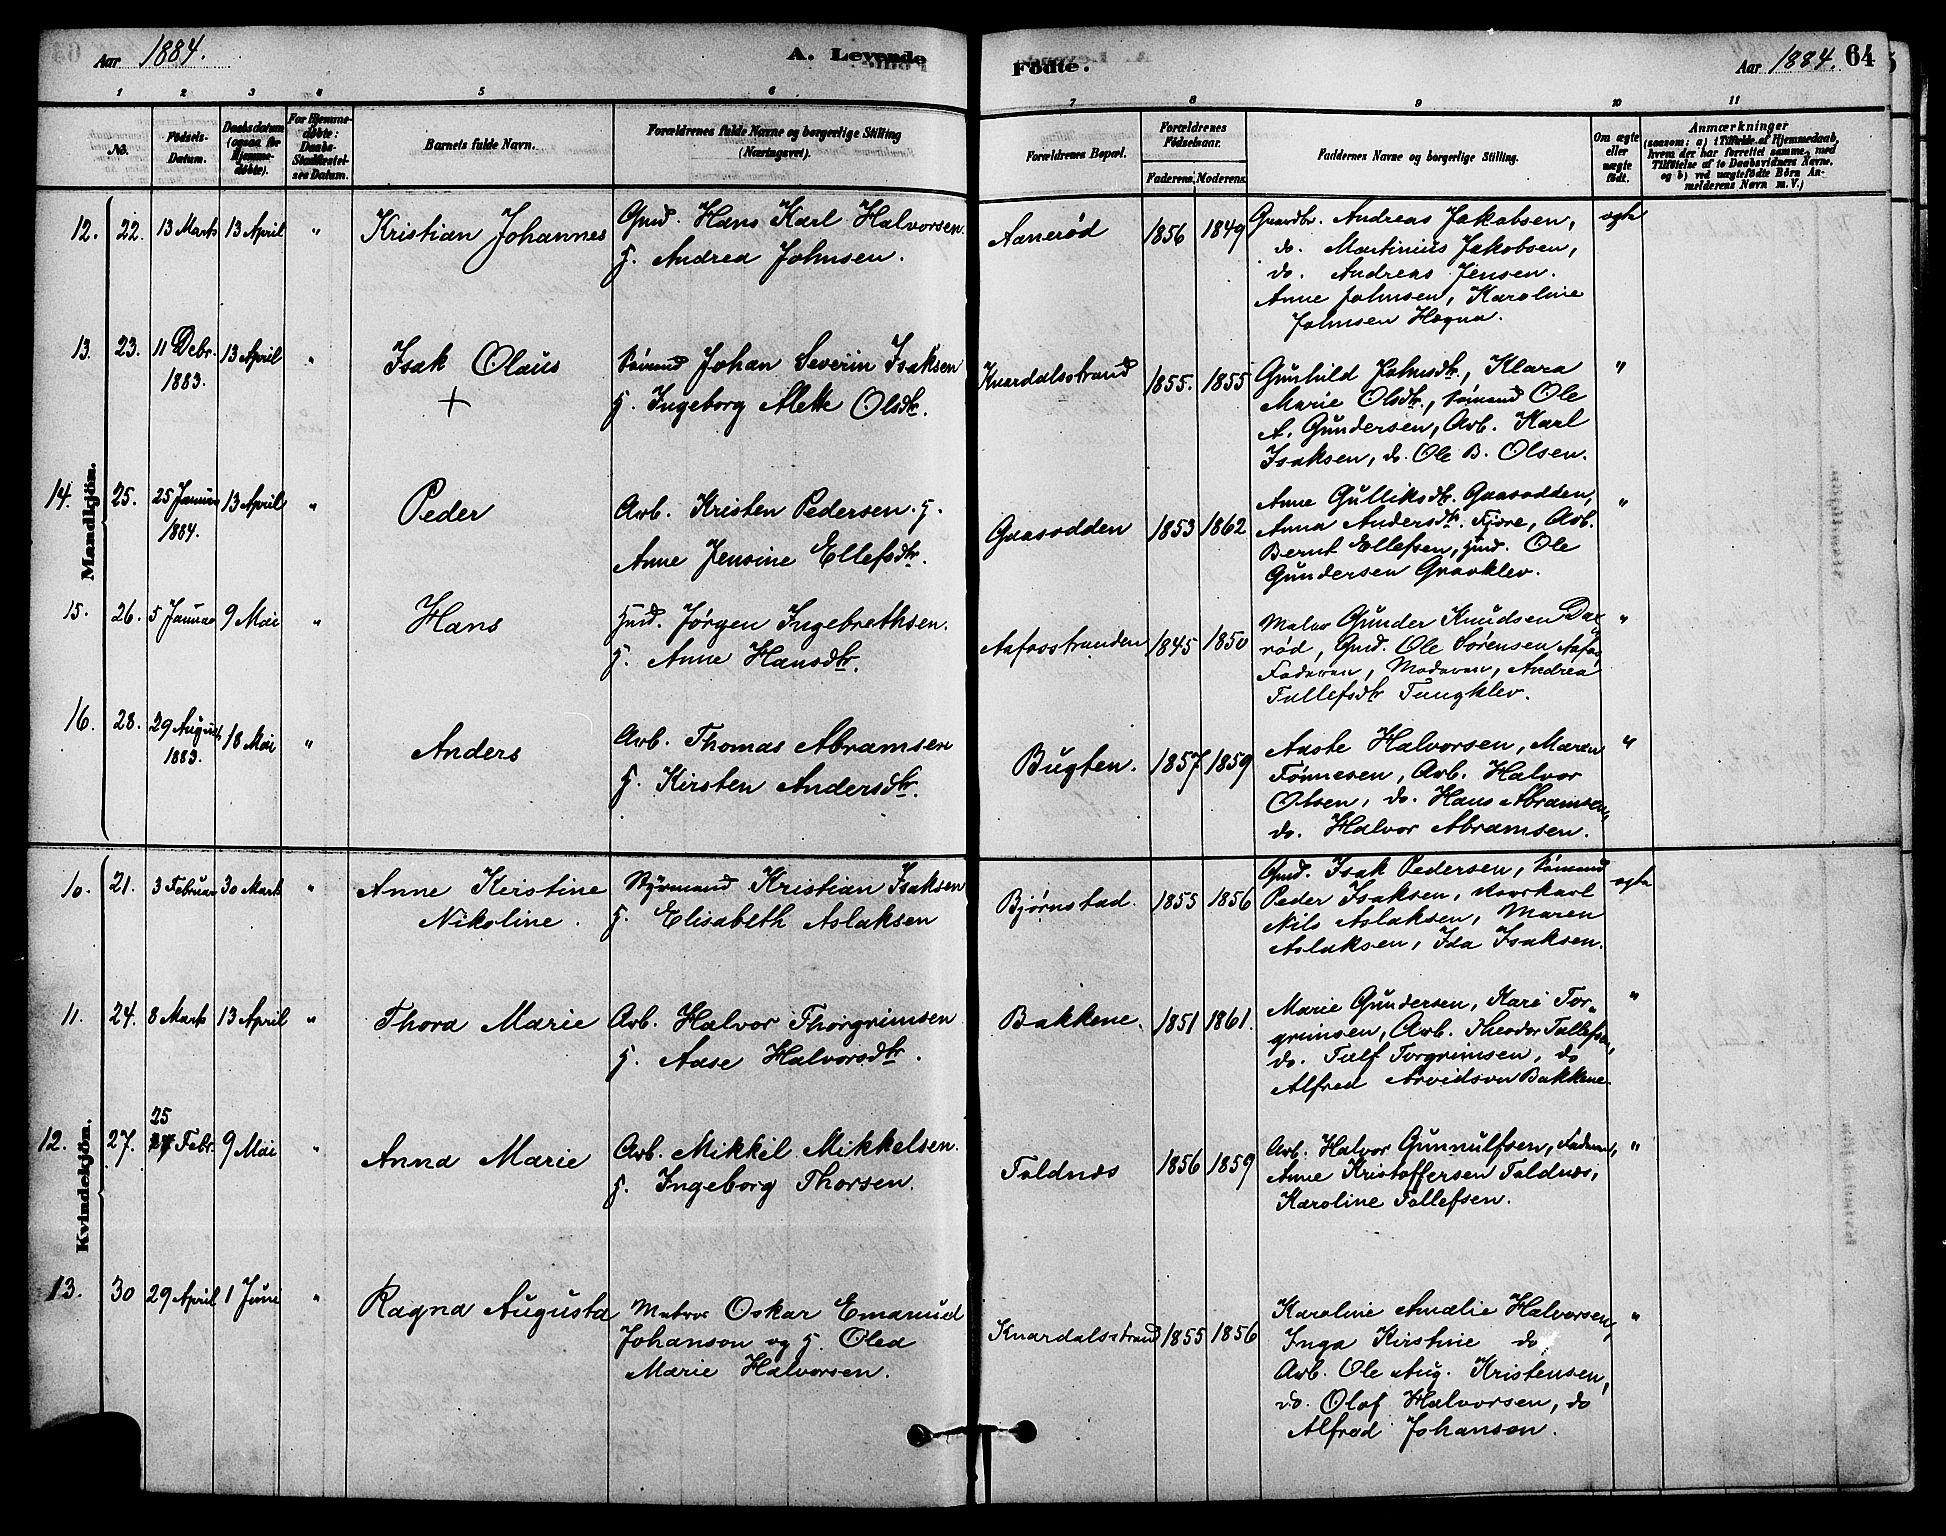 Aar 1884.
A. Levende
Fødte.
Aar 1884.
64
1 2 3 4 5 6 7 8 9 10 11
No.
Fødsels-
Datum.
Daabsdatum
(ogsaa for
Hjemme-
døbte).
For Hjemme-
døbte:
Daabs-
Stadfæstel-
ses Datum.
Barnets fulde Navn.
Forældrenes fulde Navne og borgerlige Stilling
(Næringsvei).
Forældrenes Bopæl.
Forældrenes
Fødselsaar.
Faderens. Moderens.
Faddernes Navne og borgerlige Stilling.
Om ægte
eller
uægte
født.
Anmærkninger
(saasom: a) i Tilfælde af Hjemmedaab,
hvem der har forrettet samme, med
Tilføielse af to Daabsvidners Navne,
og b) ved uægtefødte Børn An-
melderens Navn m. V.)
Mandkjön.
12. 22. 13 Marts 13 April "
Kristian Johannes
Gmd. Hans Karl Halvorsen.
H. Andrea Johnsen.
Aanerød
1856 1849
Gaardbr. Andreas Jakobsen,
do. Martinius Jakobsen,
do. Andreas Jensen.
Anne Johnsen, Karoline
Johnsen Hogna.
ægte
13. 23. 11 Debr. 13 April "
1883.
Isak Olaus
+
Sømand Johan Severin Isaksen
H. Ingeborg Alette Olsdtr.
Knardalsstrand
1855. 1855
Gunhild Johnsdtr, Klara
Marie Olsdtr., Sømand Ole
A. Gundersen, Arb. Karl
Isaksen, do. Ole B. Olsen.
"
14. 25. 25 Januar 13 April "
1884.
Peder
Arb. Kristen Pedersen. H.
Anne Jensine Ellefsdtr.
Gaasodden
1853 1862
Anne Gulliksdtr. Gaasodden,
Anna Andersdtr. Fjære, Arb.
Bernt Ellefsen, Hmd. Ole
Gundersen Gravklev.
"
15. 26. 5 Januar 9 Mai "
Hans
Hmd. Jørgen Ingebrethsen.
H. Anne Hansdtr.
Aafosstranden
1845 1850
Maler Gunder Knudsen Dae-
rød, Gmd. Ole Sørensen Aafos,
Faderen, Moderen, Andrea
Tallefsdtr Tungklev.
"
16. 28. 29 August 18 Mai "
1883.
Anders
Arb. Thomas Abramsen
H. Kirsten Andersdtr.
Bugten.
1857 1859
Aaste Halvorsen, Maren
Tønnesen, Arb. Halvor
Olsen, do. Hans Abramsen,
do. Halvor Abramsen.
"
Kvindekjön.
10. 21. 3 Februar 30 Marts "
Anne Kirstine
Nikoline.
Styrmand Kristian Isaksen
H. Elisabeth Aslaksen
Bjørnstad.
1855 1856
Gmd. Isak Pedersen, Sømand
Peder Isaksen,
Nils Aslaksen, Maren
Aslaksen, Ida Isaksen.
ægte
11. 24. 8 Marts 13 April "
Thora Marie
Arb. Halvor Thorgrimsen
H. Aase Halvorsdtr.
Bakkene.
1851 1861.
Marie Gundersen, Kari Tor-
grimsen, Arb. Theodor Tallefsen,
do. Tallf Torgrimsen, do
Alfred Arvidson Bakkene.
"
12. 27. 25 Febr. 9 Mai "
Anna Marie
Arb. Mikkel Mikkelsen.
H. Ingeborg Thorsen.
Toldnæs
1856 1859
Arb. Halvor Gunnulfsen, Faderen,
Anne Kristoffersen Toldnæs,
Karoline Tollefsen.
"
13. 30 29 April 1 Juni "
Ragna Augusta
Matros Oskar Emanuel
Johanson og H. Olea
Marie Halvorsen.
Knardalsstrand
1855 1856
Karoline Amalie Halvorsen,
Inga Kirstine do,
Arb. Ole Aug. Kristensen,
do. Olaf Halvorsen, do
Alfred Johanson.
"